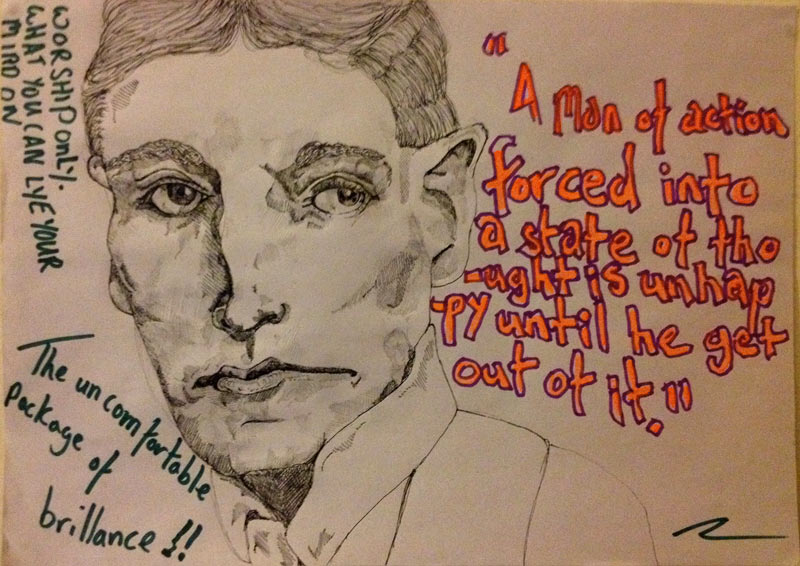 WORSHIP ONLY.
WHAT YOU CAN LYE YOUR
MIRD ON
"A Man of action
forced into
a state of tho
-ught is unhap
-py until he get
out of it."
The uncomfortable
package of
brillance !!